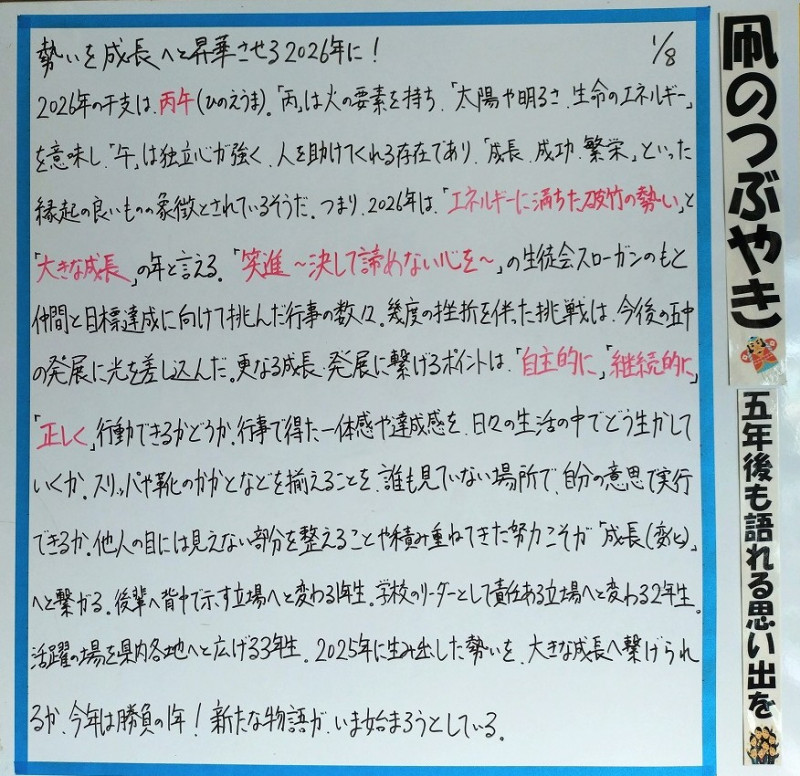 勢いを成長へと昇華させる2026年に！ 1/8
2026年の干支は、丙午(ひのえうま)。「丙」は火の要素を持ち、「太陽や明るさ、生命のエネルギー」
を意味し「午」は独立心が強く、人を助けてくれる存在であり、「成長、成功、繁栄」といった
縁起の良いものの象徴とされているそうだ。つまり、2026年は、「エネルギーに満ちた破竹の勢い」と
「大きな成長」の年と言える。「笑進〜決して諦めない心を〜」の生徒会スローガンのもと
仲間と目標達成に向けて挑んだ行事の数々。幾度の挫折を伴った挑戦は、今後の五中
の発展に光を差し込んだ。更なる成長、発展に繋げるポイントは、「自主的に」「継続的に」
「正しく」行動できるかどうか。行事で得た一体感や達成感を、日々の生活の中でどう生かして
いくか。スリッパや靴のかかとなどを揃えることを、誰も見ていない場所で、自分の意思で実行
できるか。他人の目には見えない部分を整えることや積み重ねてきた努力こそが「成長(変化)」
へと繋がる。後輩へ背中で示す立場へと変わる1年生。学校のリーダーとして責任ある立場へと変わる2年生。
活躍の場を県内各地へと広げる3年生。2025年に生み出した勢いを、大きな成長へ繋げられ
るか、今年は勝負の1年！新たな物語が、いま始まろうとしている。
凧のつぶやき
五年後も語れる思い出を